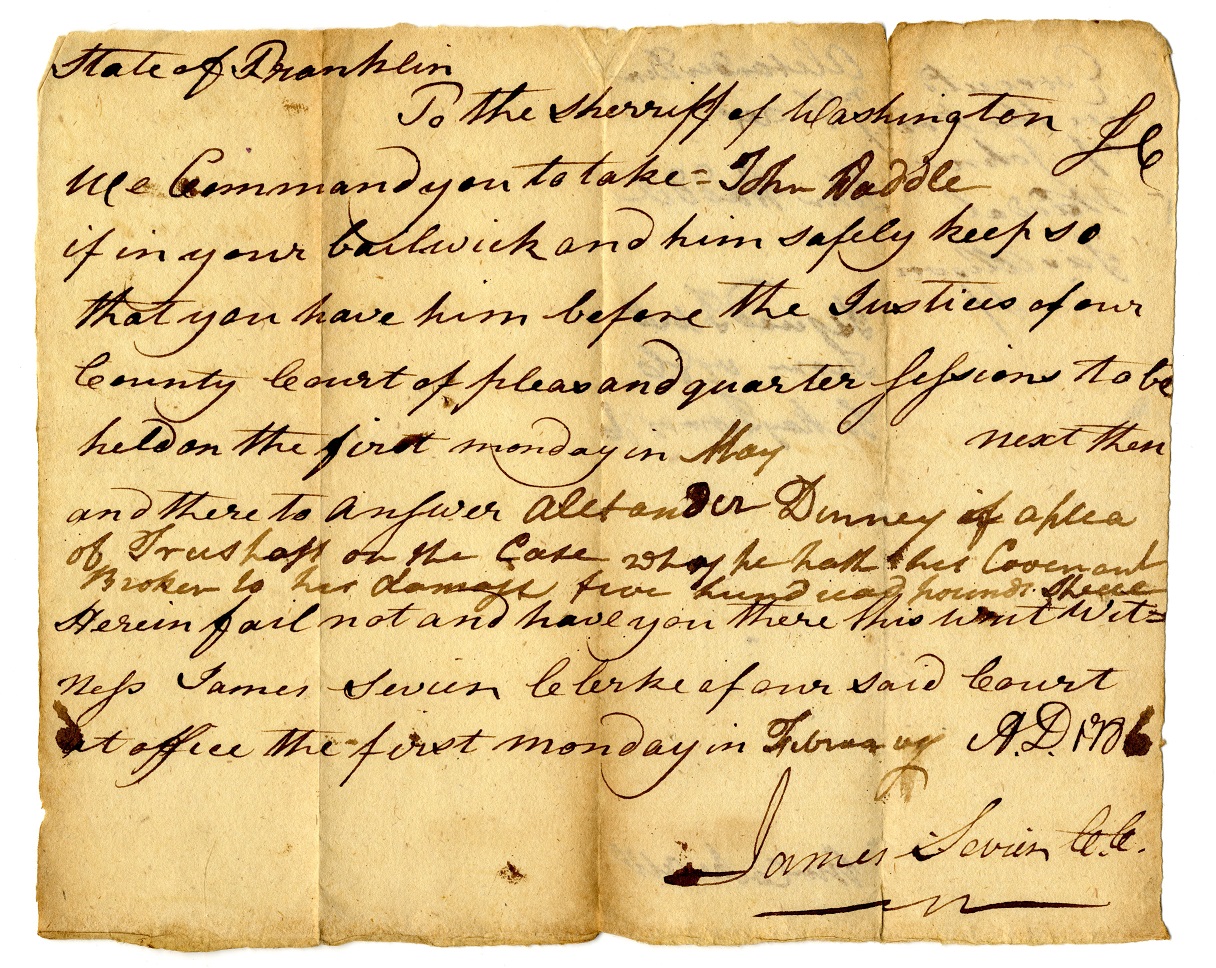 State of Franklin
To the Sherriff of Washington
We Command you to take = John Waddle
if in your bailwick and him safely keep so
that you have him before the Justices of our
County Court of pleas and quarter Sessions to be
held on the first monday in May next then
and there to Answer Alexander Denney of a plea
of on the Case why he hath his Covenant
Broken to his damage five pounds
Herein fail not and have you there this writ Wit=
ness James Sevier Clerke of our said Court
at office the first monday in February A.D. 1786
James Sevier C.C.